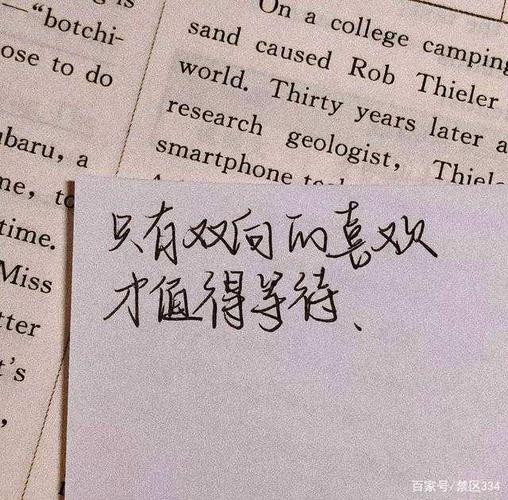 —"botchi-
ose to do
ubaru, a
me, to
time.
Miss
tter
t's
,
On a college camping
sand caused Rob Thieler
world. Thirty years later a
research geologist, Thiele
smartphone
只有双向的喜欢
才值得等待、
百家号/禁区334